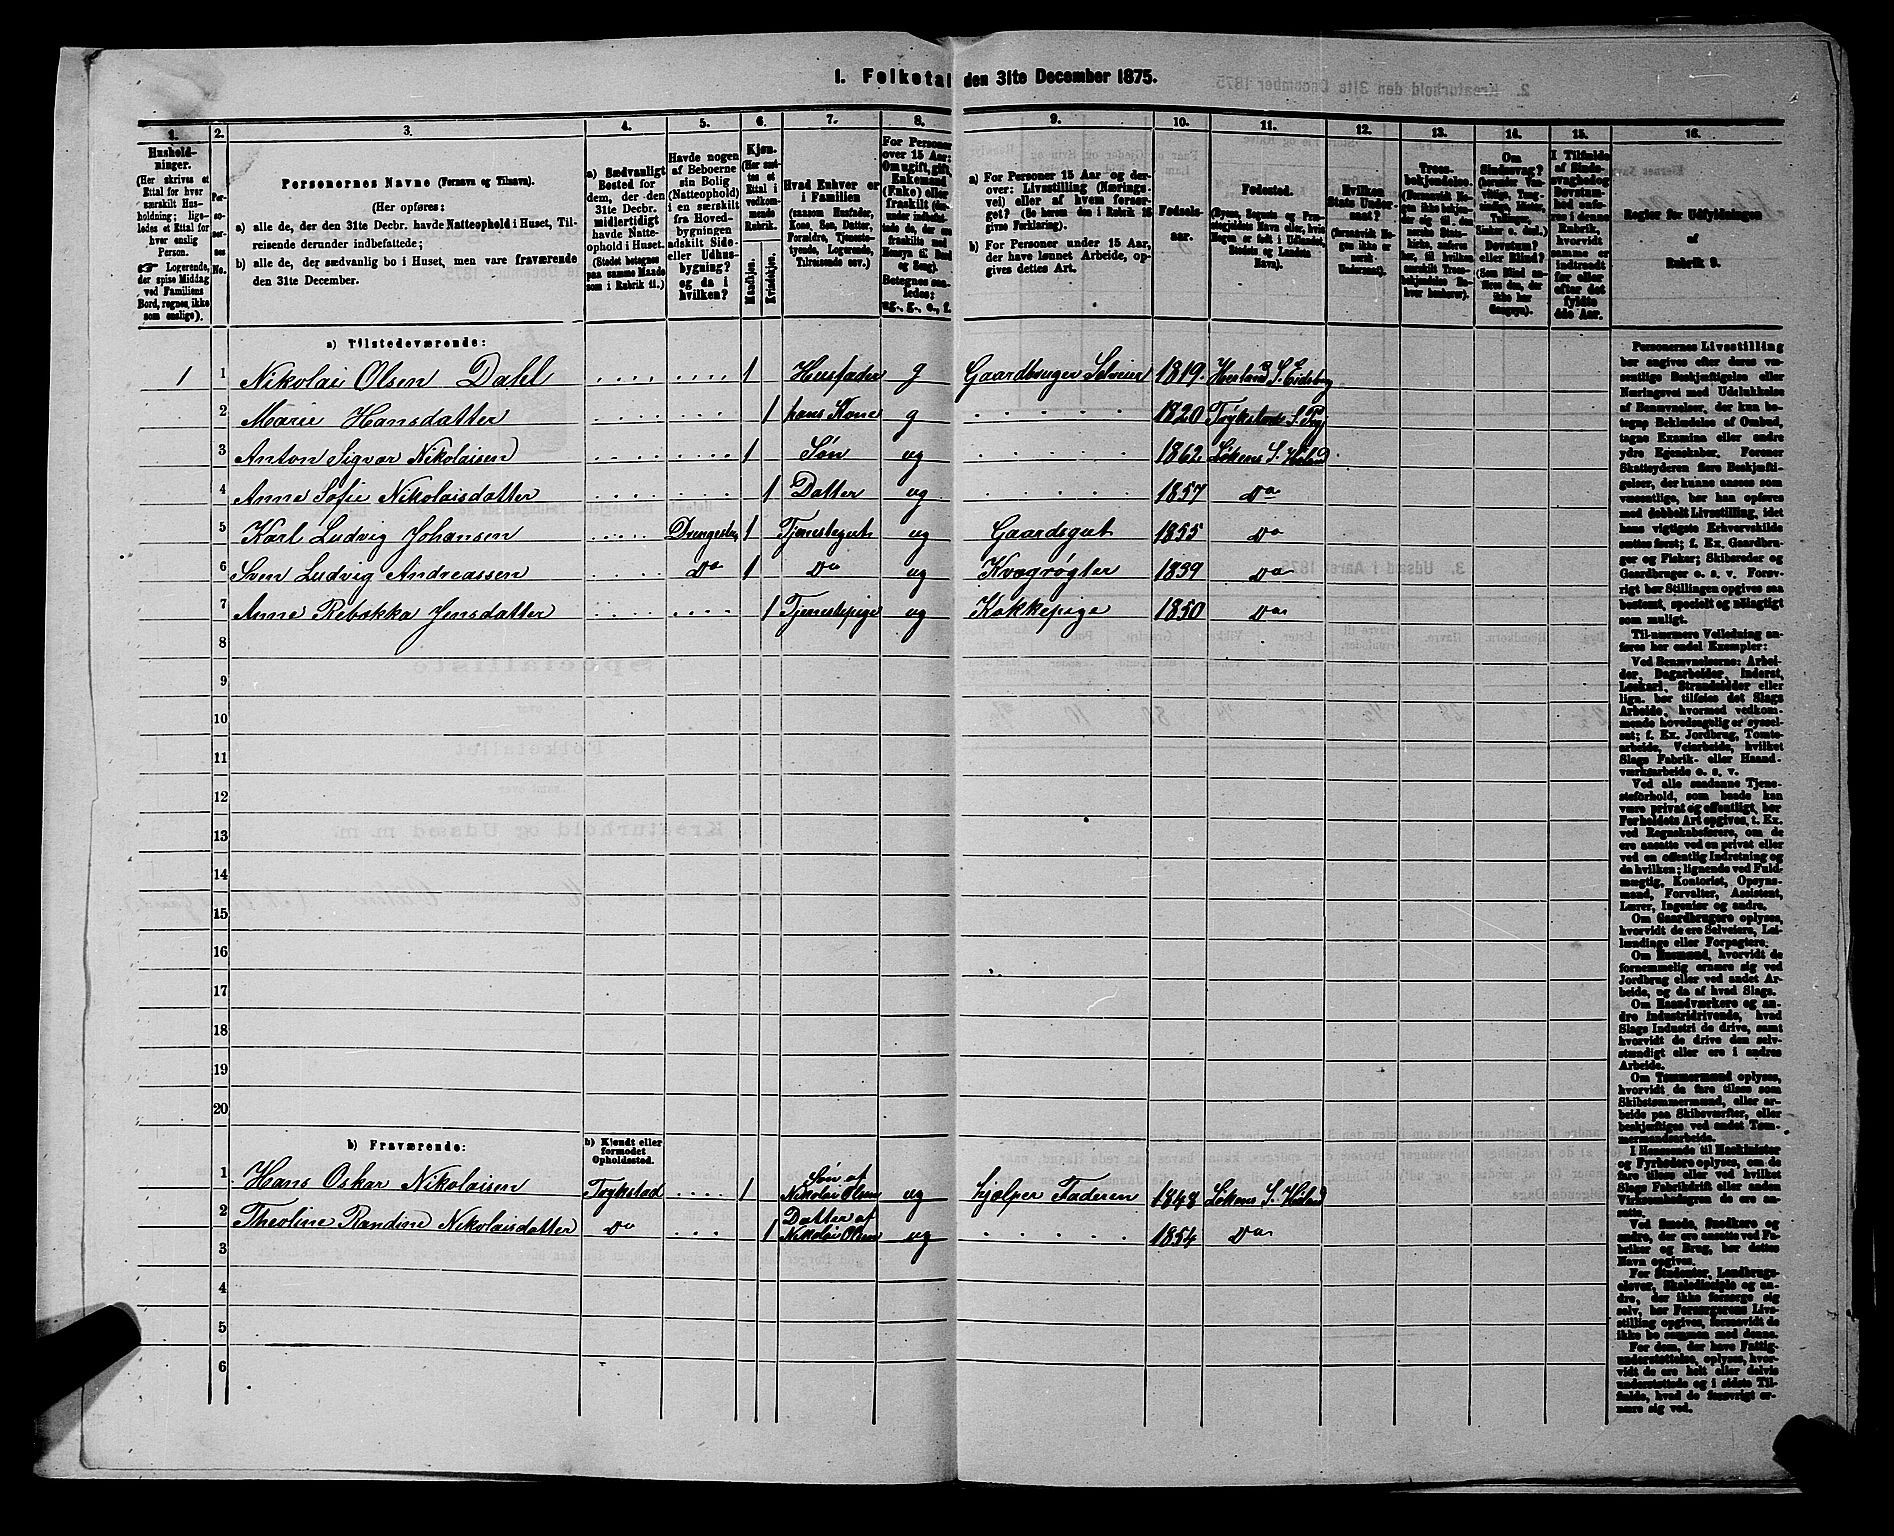 1. Folketal den 31te December 1875.
1. 2. 3. 4. 5. 6. 7. 8. 9. 10. 11. 12. 13. 14. 15. 16.
Hushold-
ninger.
(Her skrives et
Ettal for hver
særskilt Hus-
holdning; lige-
ledes et Ettal
for hver
enslig
Person.
Logerende,
der spise Middag
ved Familiens
Bord, regnes ikke
som enslige).
Per-
so-
ner-
nes
No.
Personernes Navne (Fornavn og Tilnavn).
(Her opføres:
a) alle de, der den 31te Decbr. havde Natteophold i Huset, Til-
reisende derunder indbefattede;
b) alle de, der sædvanlig bo i Huset, men vare fraværende
den 31te December.
a) Sædvanligt
Bosted for
dem, der den
31te Decbr.
midlertidigt
havde Natte-
ophold i Huset.
(Stedet betegnes
paa samme Maade
som i Rubrik 11.)
Havde nogen
af Beboerne
sin Bolig
(Natteophold)
i en særskilt
fra Hoved-
bygningen
adskilt Side-
eller Udhus-
bygning?
og da i
hvilken?
Kjøn.
(Her sæt-
tes et
Ettal i
vedkom-
mende
Rubrik.
Mandkjøn.
Kvindekjøn.
Hvad Enhver er
i Familien
(saasom Husfader,
Kone, Søn, Datter,
Forældre, Tjeneste-
tyende, Logerende,
Tilreisende osv.)
For Personer
over 15 Aar:
Om ugift, gift,
Enkemand
(Enke) eller
fraskilt
Betegnes saa-
ledes:
ug., g., e., f.
a) For Personer 15 Aar og der-
over: Livsstilling (Nærings-
vei) eller af hvem forsør-
get? (Se herom den i Rubrik 16
givne Forklaring).
b) For Personer under 15 Aar,
der have lønnet Arbeide, op-
gives dettes Art.
Fødsels-
aar.
Fødested.
(Byens, Sognets og Præ-
stegjeldets Navn eller, hvis
Nogen er født i Udlandet,
Stedets og Landets
Navn).
Hvilken
Stats Under-
saat?
(forsaavidt No-
gen ikke er
norsk
Undersaat).
Troes-
bekjendelse.
Om
Sindssvag?
Døvstum?
eller Blind?
I Tilfælde
af Sinds-
svaghed og
Døvstum-
hed
Regler for Udfyldningen
af
Rubrik 9.
a) Tilstedeværende:
1 1 Nikolai Olsen Dahl 1 Husfader g Gaardbruger Selveier 1819. Herland S. Eidsberg
2 Marie Hansdatter 1 hans Kone g 1820
3 Anton Sigvar Nikolaisen 1 Søn ug 1862 Løkens S. Høland
4 Anne Sofie Nikolaisdatter 1 Datter ug 1857 Do
5 Karl Ludvig Johansen 1 Tjenestegut ug Gaardsgut 1855 Do
6 Sven Ludvig Andreassen Do 1 Do ug Kvægrøgter 1839 Do
7 Anne Rebekka Jensdatter 1 Tjenestepige ug Kokkepige 1850 Do
8
9
10
11
12
13
14
15
16
17
18
19
20
b) Fraværende:
b) Kjendt eller
formodet
Opholdssted.
1 Hans Oskar Nikolaisen Trykstad 1 Søn af Nikolai Olsen ug hjælper Faderen 1848 Løkens S. Høland
2 Theoline Randine Nikolaisdatter Do 1 Datter af Nikolai Olsen ug 1854 Do
3
4
5
6
Personernes Livsstilling
bør angives efter deres væ-
sentlige Beskjæftigelse eller
Næringsvei med Udelukkelse
af Benævnelser, der kun be-
tegne Beklædelse af Ombud,
tagne Examina eller andre
ydre Egenskaber. Forener
Skatteyderen flere Beskjæfti-
gelser, der kunne ansees som
væsentlige, bør han opføres
med dobbelt Livsstilling, idet
hans vigtigste Erhvervskilde
sættes først; f. Ex. Gaardbru-
ger og Fisker; Skibsreder og
Gaardbruger o. s. v. Forøv-
rigt bør Stillingen opgives saa
bestemt, specielt og nøiagtigt
som muligt.
Til nærmere Veiledning an-
føres her endel Exempler:
Ved Benævnelserne: Arbei-
der, Dagarbeider, Inderst,
Løskarl, Strandsidder eller
lign. bør tilføies det Slags
Arbeide, hvormed vedkom-
mende hovedsagelig er syssel-
sat; f. Ex. Jordbrug, Tomte-
arbeide, Veiarbeide, hvilket
Slags Fabrik- eller Haand-
værksarbeide o. s. v.
Ved alle saadanne Tjene-
steforhold, som baade kan
være privat og offentligt, bør
Forholdets Art opgives, t. Ex.
ved Regnskabsførere, om de
ere ansatte ved en privat eller
ved en offentlig Indretning og
da hvilken; lignende ved Fuld-
mægtig, Kontorist, Opsyns-
mand, Forvalter, Assistent,
Lærer, Ingeniør og andre.
Om Gaardbrugere oplyses,
hvorvidt de ere Selveiere, Lei-
lændinge eller Forpagtere.
Om Husmænd, hvorvidt de
fornemmelig ernære sig ved
Jordbrug eller ved andet Ar-
beide, og da af hvad Slags.
Om Haandværkere og an-
dre Industridrivende, hvad
Slags Industri de drive, samt
hvorvidt de drive den selv-
stændigt eller ere i andres
Arbeide.
Om Tømmermænd oplyses,
hvorvidt de fare tilsøs som
Skibstømmermænd, eller ar-
beide paa Skibsværfter, eller
beskjæftiges ved andet Tøm-
mermandsarbeide.
I Henseende til Maskinister
og Fyrbødere oplyses, om de
fare tilsøs eller ved hvilket
Slags Fabrikdrift eller anden
Virksomhed de ere an-
satte.
Ved Smede, Snedkere og
andre, der ere ansatte ved Fa-
briker og Brug, bør dettes
Navn opgives.
For Studenter, Landbrugs-
elever, Skoledisciple og an-
dre, der ikke forsørge sig
selv, bør Forsørgerens Livs-
stilling opgives, forsaavidt de
ikke bo sammen med denne.
For dem, der have Fattig-
understøttelse, oplyses, hvor-
vidt de ere helt eller delvis
understøttede og i sidste Til-
fælde, hvad de forøvrigt er-
nære sig ved.